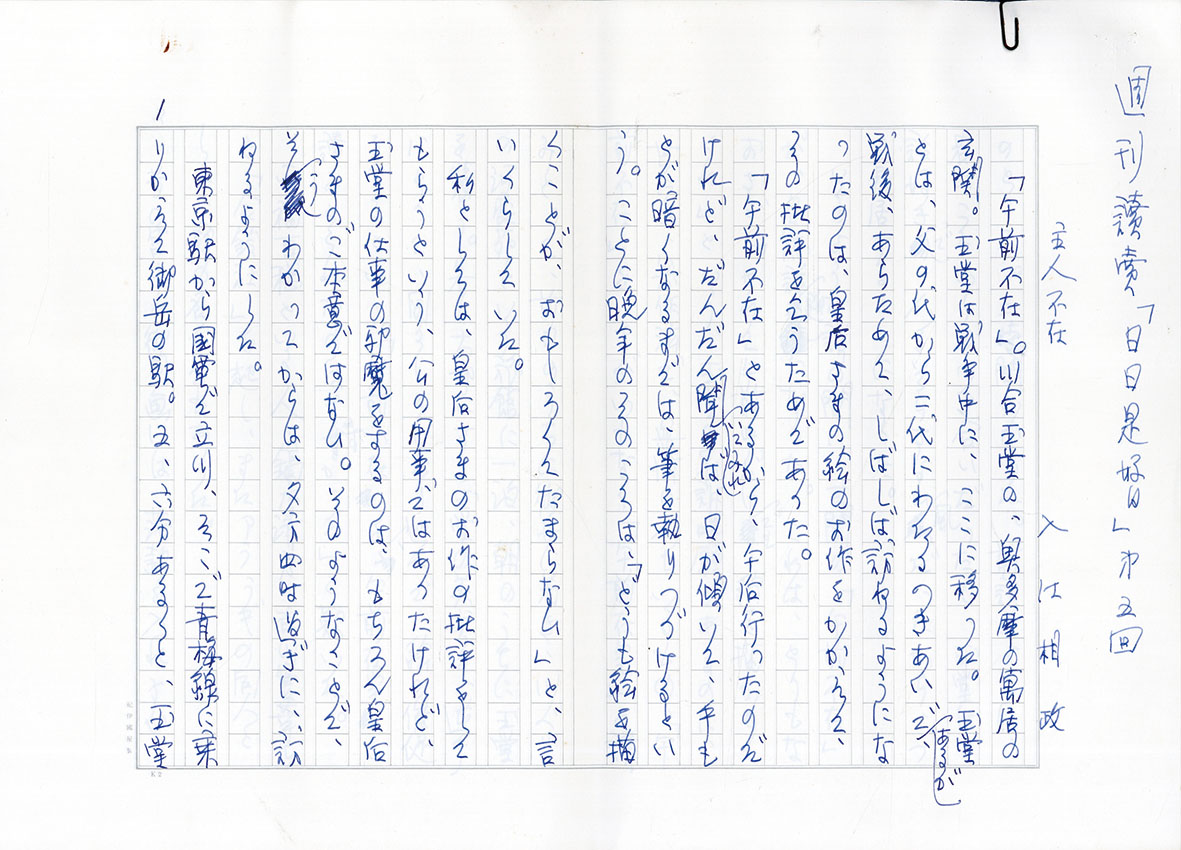 週刊讀賣「日日是好日」第五回
主人不在
入江相政
「午前不在」。川合玉堂の、奥多摩の寓居の
玄関。玉堂は戦争中に、ここに移った。玉堂
とは、父の代から二代にわたるつきあいで、
(あるが)
戦後、あらためて、しばしば訪ねるようにな
ったのは、皇后さまの絵のお作をかかえて、
その批評を乞うためであった。
「午前不在」とあるから、午后行ったのだ
けれど、だんだん聞いてみれば、日が傾いて、手も
とが暗くなるまでは、筆を執りつづけるとい
う。ことに晩年のそのころは、「どうも絵を描
くことが、おもしろくてたまらない」と、言
いくらしていた。
私としては、皇后さまのお作の批評をして
もらうという、公の用事ではあったけれど、
玉堂の仕事の邪魔をするのは、もちろん皇后
さまのご本意ではない。そのようなことで、
そうわかってからは、夕方四時過ぎに、訪
ねるようにした。
東京駅から国電で立川、そこで青梅線に乗
りかえて御岳の駅。五、六分あるくと、玉堂
1
紀伊國屋製
K2